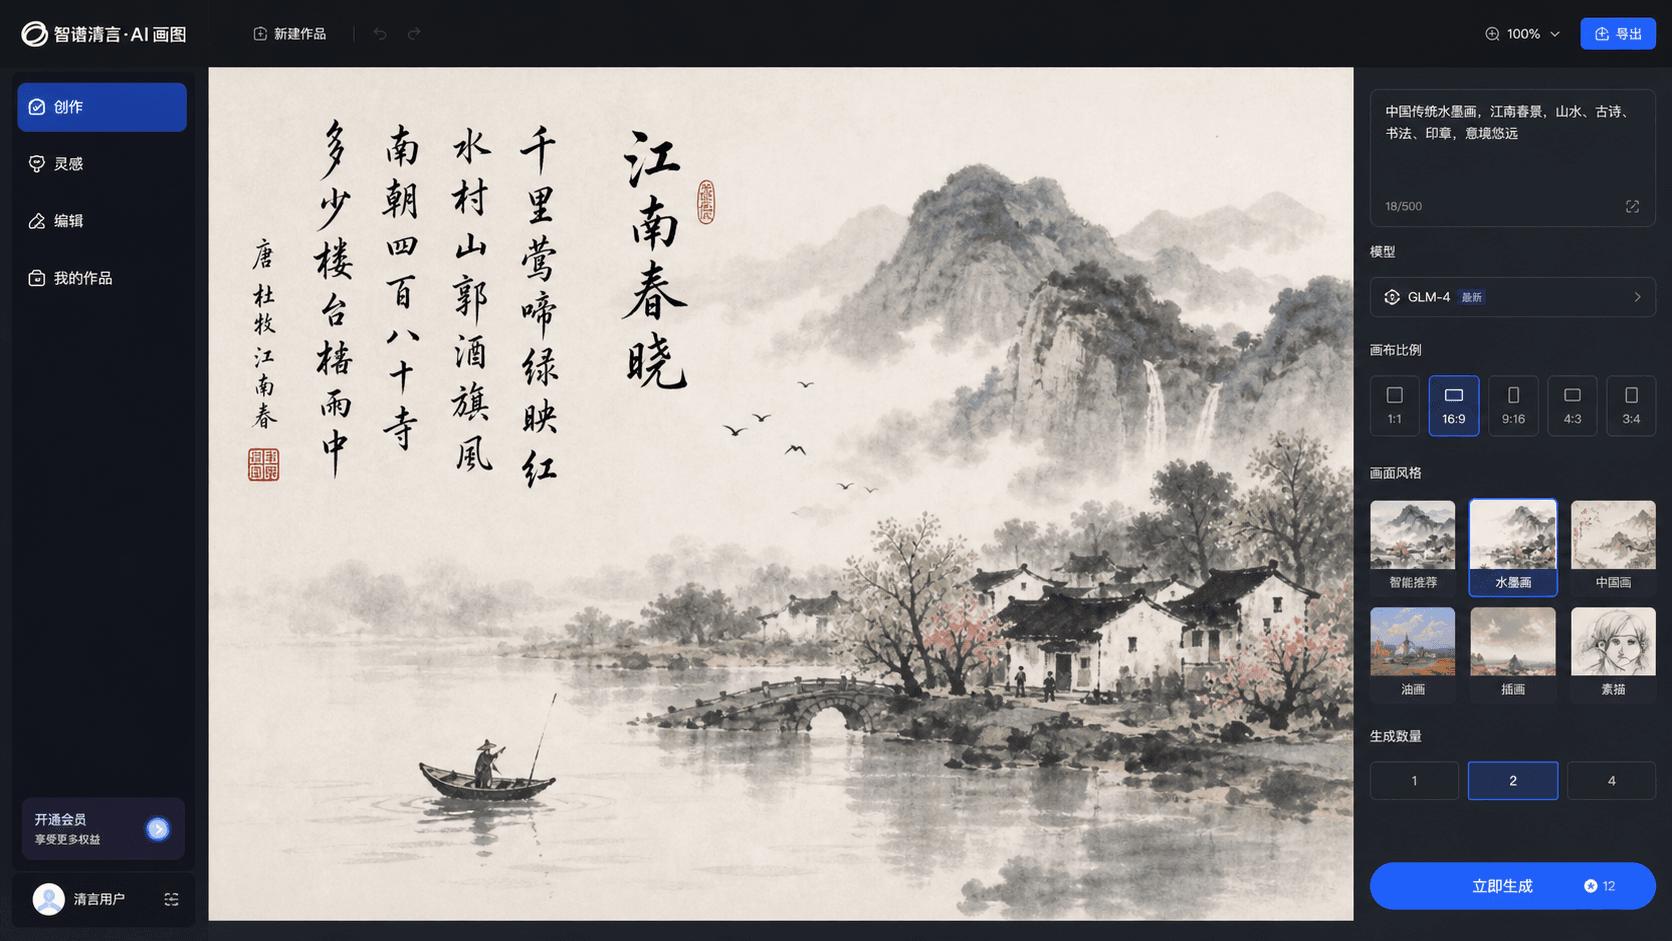 智谱清言·AI 画图
新建作品
100%
导出
创作
灵感
编辑
我的作品
开通会员
享受更多权益
清言用户
江南春晓
千里莺啼绿映红
水村山郭酒旗风
南朝四百八十寺
多少楼台樯雨中
唐 杜牧 江南春
中国传统水墨画，江南春景，山水、古诗、
书法、印章，意境悠远
18/500
模型
GLM-4 最新
画布比例
1:1
16:9
9:16
4:3
3:4
画面风格
智能推荐
水墨画
中国画
油画
插画
素描
生成数量
1
2
4
立即生成
12